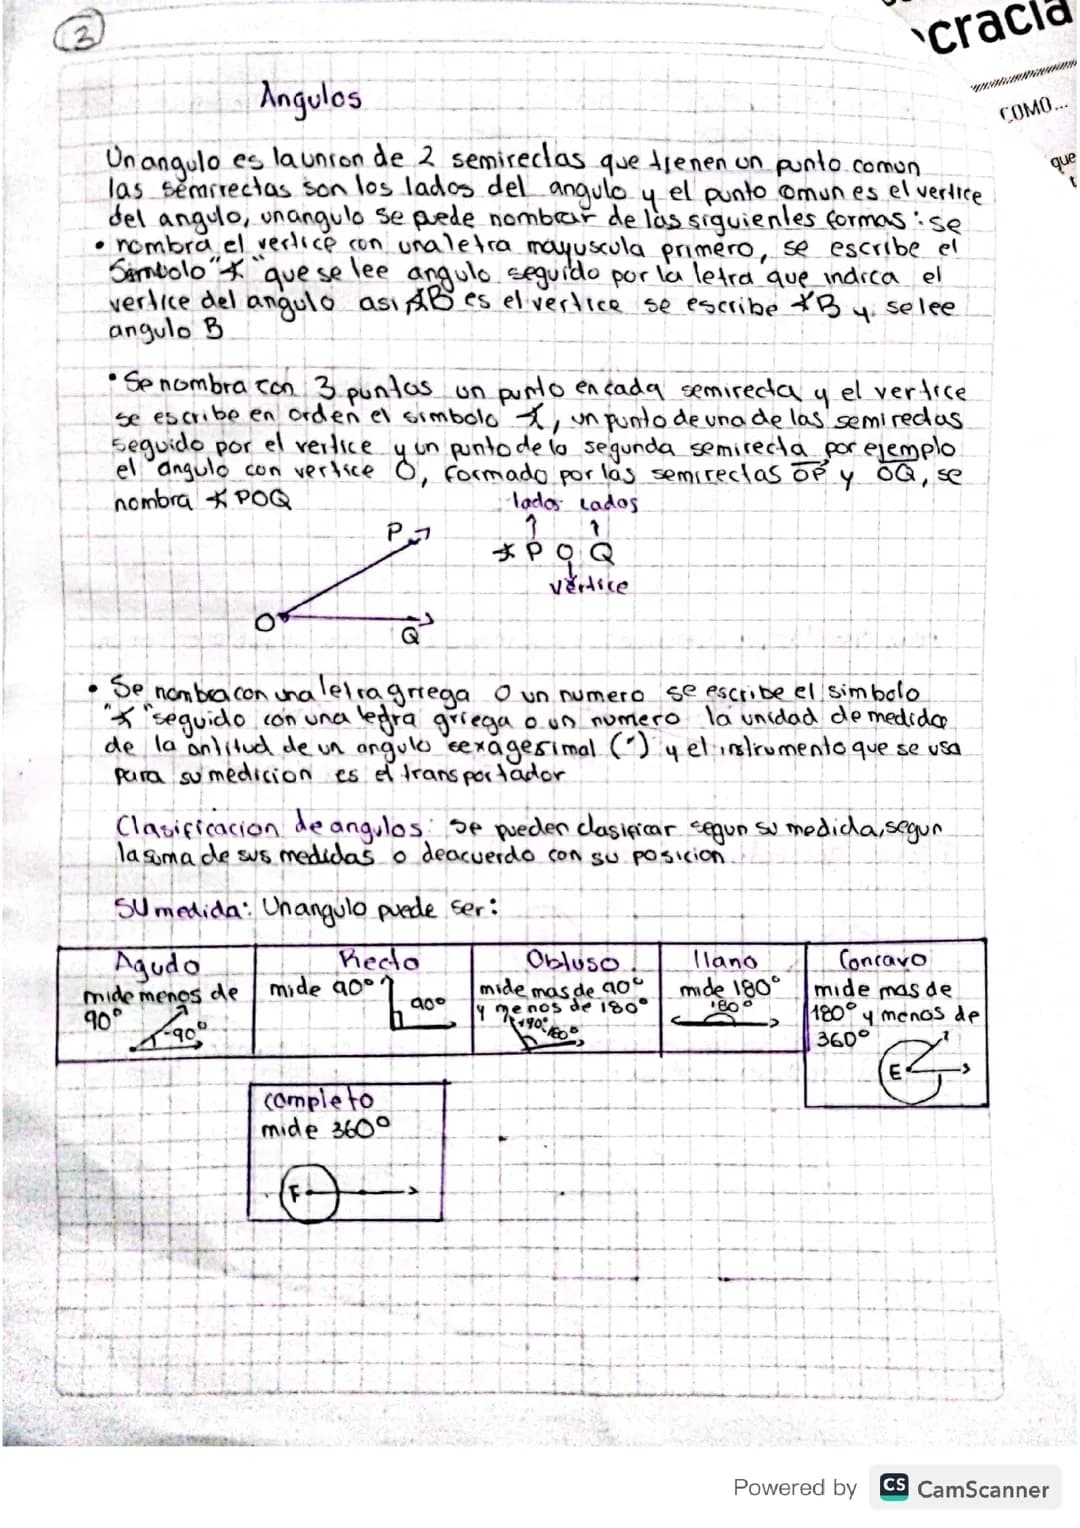 2
cracia
COMO...
que
Angulos
Un angulo es la union de 2 semirectas que tienen un punto comun
las semirrectas son los lados del angulo y el punto omun es el vertice
del angulo, un angulo se puede nombrar de las siguientes formas: se
• nombra el vertice con una letra mayuscula primero, se escribe el
Simbolo "∡" que se lee angulo seguido por la letra que indica el
vertice del angulo asi ∡B es el vertice se escribe ∡B y se lee
angulo B
• Se nombra con 3 puntos un punto en cada semirecta y el vertice
se escribe en orden el simbolo ∡, un punto de una de las semirectas
seguido por el vertice y un punto de la segunda semirecta por ejemplo
el angulo con vertice O, formado por las semirectas OP y OQ, se
nombra ∡ POQ
lados lados
P
∡ P O Q
vértice
O
Q
• Se nombra con una letra griega o un numero se escribe el simbolo
"∡" seguido con una letra griega o un numero la unidad de medida
de la antitud de un angulo sexagesimal (°) y el instrumento que se usa
para su medicion es el transportador
Clasificacion de angulos: se pueden clasificar segun su medida, segun
la suma de sus medidas o deacuerdo con su posicion
SU medida: Un angulo puede ser:
Agudo
mide menos de
90°
-90°
Recto
mide 90°
90°
Obtuso
mide mas de 90°
y menos de 180°
+90° 180°
llano
mide 180°
180°
Concavo
mide mas de
180° y menos de
360°
E
completo
mide 360°
F
Powered by CS CamScanner